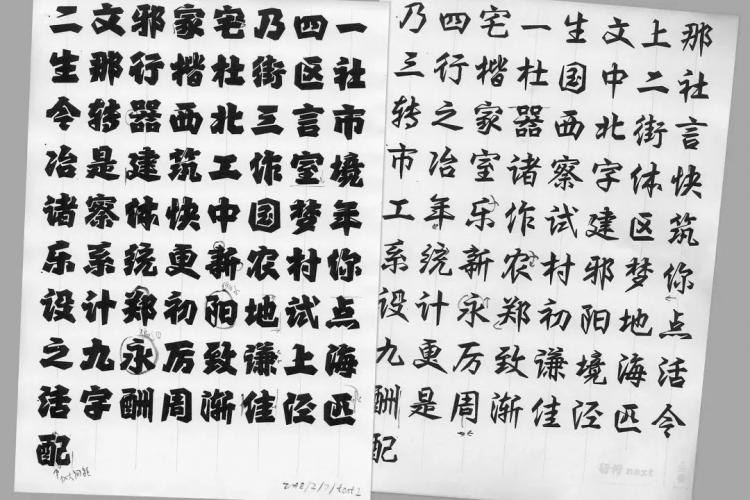 二文邪家宅乃四一
生那行楷杜街区社
令转器西北三言市
冶是建筑工作室境
诸察体快中国梦年
乐系统更新农村你
设计郑初阳地试点
之九永厉致谦上海
活字酬周渐佳泾匹
配
乃四宅一生文上那
三行楷杜国中二社
转之家器西北街言
市冶室诸察字体快
工年乐作试建区筑
系统新农村邪梦你
设计永郑初阳地点
九更厉致谦境海活
酬是周渐佳泾匹令
配